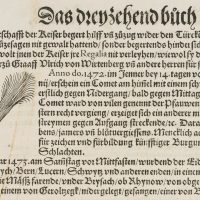 Das dreyzehend bůch
schafft der Keiser begert hilff vñ zůzug wider den Türcke
zůzesagen mit gewalt hattend/ so begertends hinder sich
wolt jnen der Keiser jre Regalia nit verleyhen/ wiewol
Graaff Vlrich von Wirtenberg vñ andere herren für
Anno do. 1472. im Jenner bey 14. tagen
nij/ erschein ein Comet am himel mit einem
erstlich gegen Nidergang/ bald gegem Mittag
Comet ward von vilen genennet der Pfawen
dem rectt verschwand/ erschein ein anderer
streymen gegen Aufgang streckende/ ꝛc. Darauf
bens/ jamers vñ blůtvergiessens. Mencklich
für zeichen vnd fürbildung künfftiger Burgun
Schlachten.
1473. am Sanstag vor Mitfasten/ wurdend der Eid
Zürych/ Bern/ Lucern/ Schwytz vnd anderen enden/ in einem
Mäss farende/ vnder Brysach/ ob Rhynow/ von obge
einem von Geroltzegk/ nidergelegt/ gefangen/ einer von